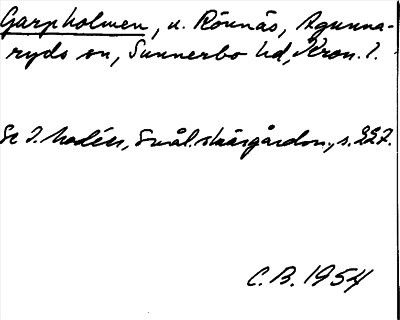 Garpholmen, u. Rönnäs, Agunna-
ryds sn, Sunnerbo hd, Kron. l.
Se J. Modéer, Smål. skärgårdsn., s. 227.
C. B. 1954